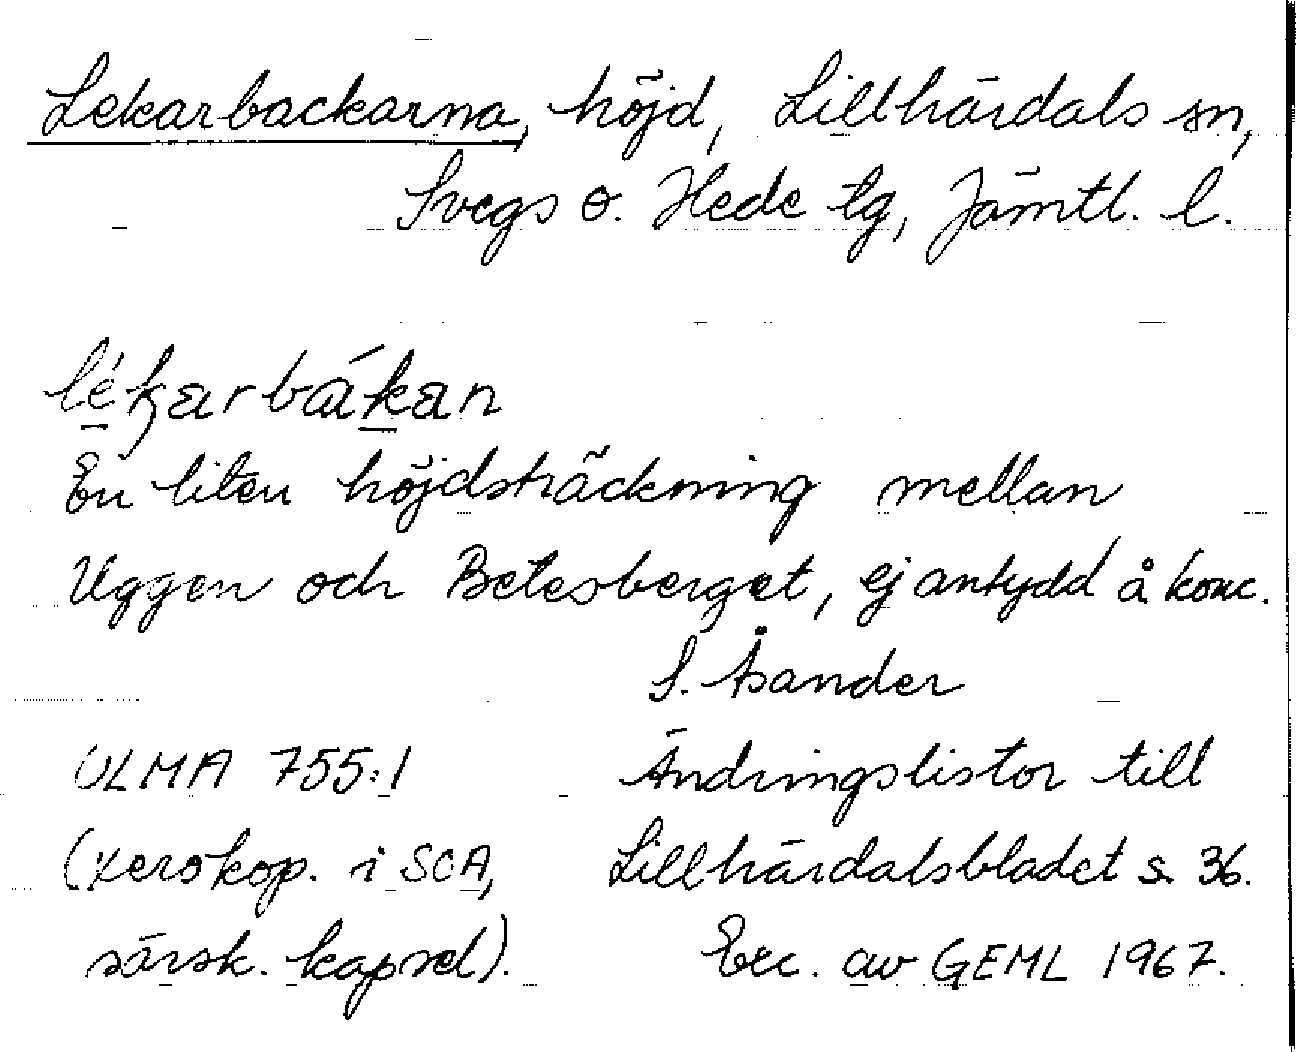 Lekarbackarna, höjd, Lillhärdals sn,
Svegs o. Hede tg, Jämtl. l.
lékarbákan
En liten höjdsträckning mellan
Uggen och Betesberget, ej antydd å konc.
S. Åsander
ULMA 755:1
(xerokop. i SOA,
särsk. kapsel).
Ändringslistor till
Lillhärdalsbladet s. 36.
Exc. av GEML 1967.